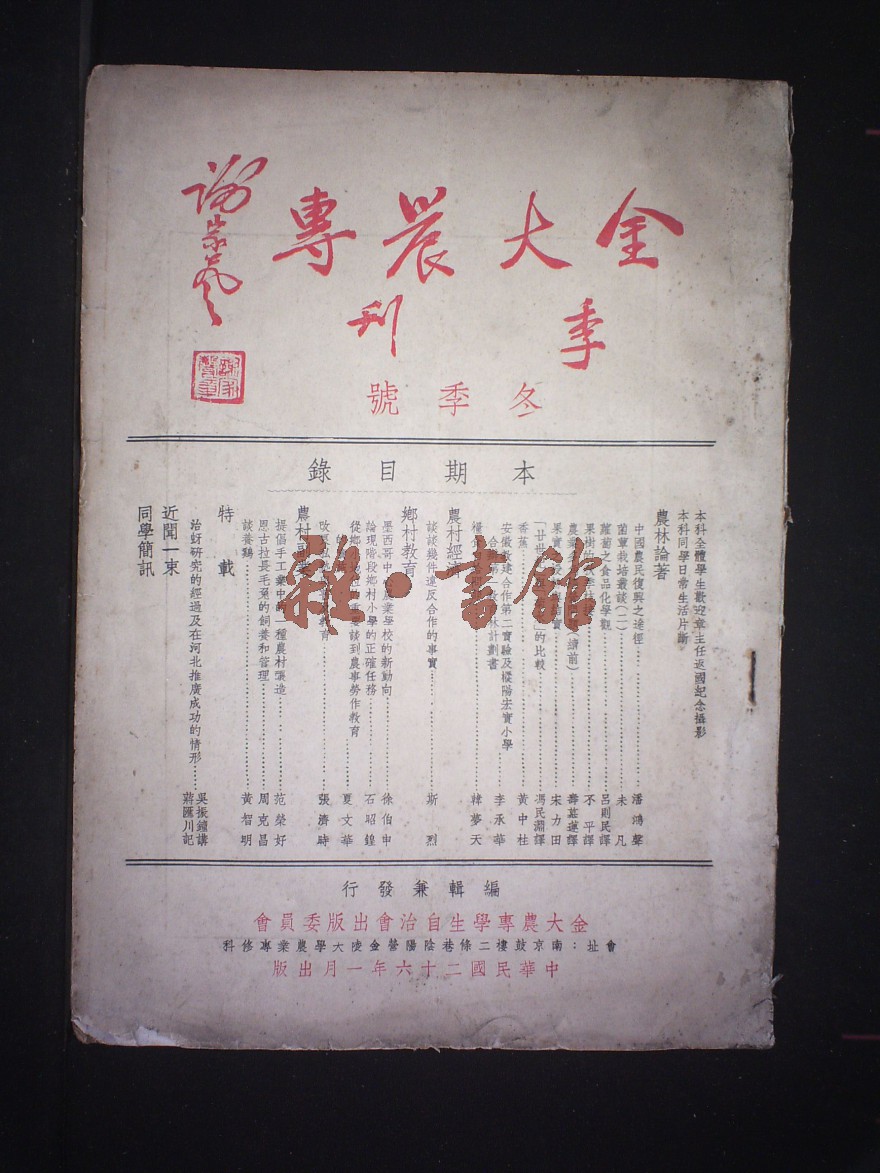 金大農專
季刊
冬季號
本期目錄
本科全體學生歡迎章主任返國記念攝影
本科同學日常生活片斷
農林論著
中國農民復興之途徑 潘鴻聲
菌蕈栽培叢談(二) 未凡
蘿蔔之食品化學觀 呂則民譯
果樹的 不平譯
農業 (續前) 壽墓蓮譯
果實 宋力田
「廿世 的比較 馮民淵譯
香蕉 黃中柱
安徽教建合作第二實驗及樅陽宏實小學
合 林計劃書 李承華
韓夢天
農村經濟
談談幾件違反合作的事實 斯烈
鄉村教育
墨西哥中 農業學校的新動向 徐伯申
論現階段鄉村小學的正確任務 石昭鍠
從鄉 重要談到農事勞作教育 夏文華
教育 張濟時
農村副業
提倡手工業中的一種農村釀造 范榮好
恩古拉長毛兔的飼養和管理 周克昌
談養鷄 黃智明
特載
治蚜研究的經過及在河北推廣成功的情形 吳振鐘講 蔣匯川記
近聞一束
同學簡訊
雜·書館
編輯兼發行
金大農專學生自治會出版委員會
會址:南京鼓樓二條巷陰陽營金陵大學農業專修科
中華民國二十六年一月出版